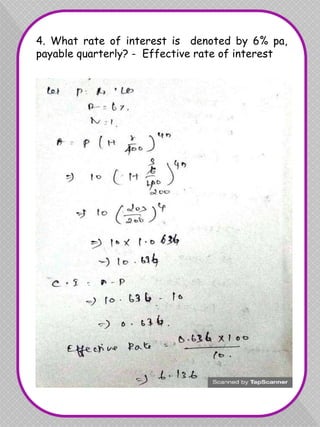 4. What rate of interest is denoted by 6% pa,
payable quarterly? - Effective rate of interest
Let P = Rs. 10
R = 6%
N = 1.
A = P (1+ r/400)^4n
=) 10 (1+ 6/400)^4n
3
200
=) 10 (203/200)^4
=) 10 x 1.0636
=) 10.636
C.I = A - P
=) 10.636 - 10
=) 0.636.
Effective Rate = 0.636 x 100
10.
=) 6.136
Scanned by TapScanner